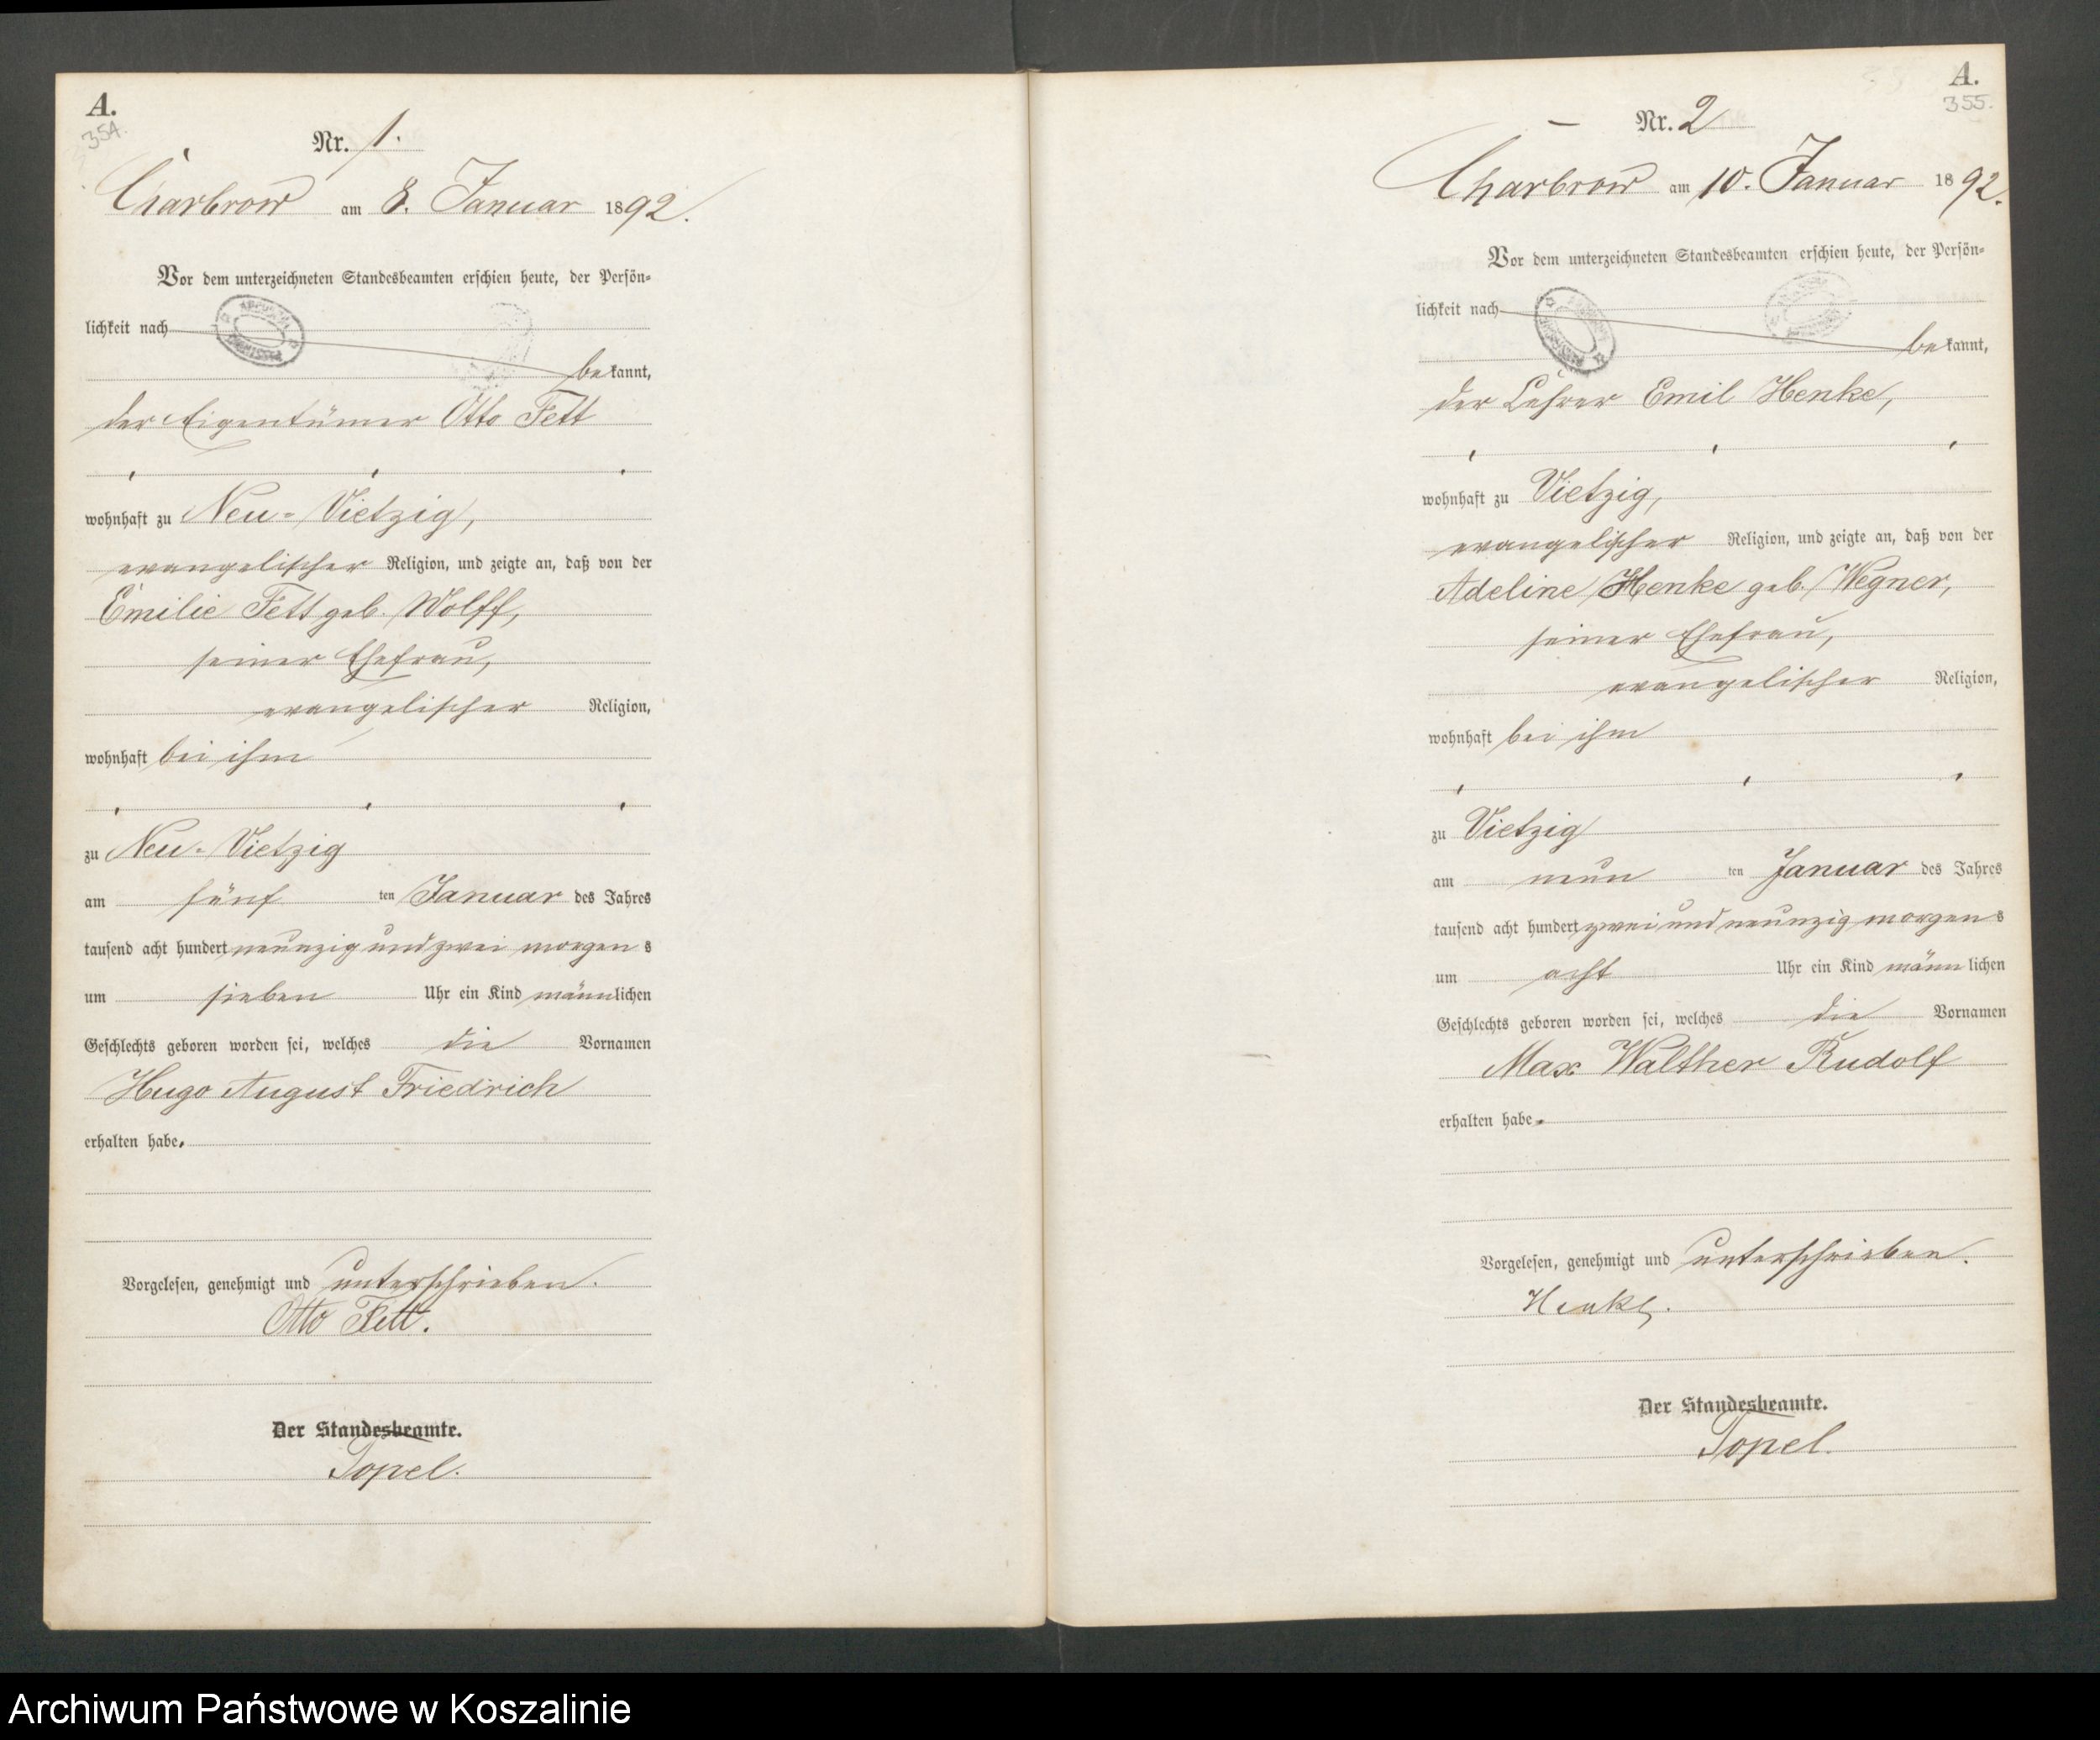 A.
354.
Nr. 1.
Charbrow am 8. Januar 1892.
Vor dem unterzeichneten Standesbeamten erschien heute, der Persön-
lichkeit nach
bekannt,
der Eigentümer Otto Fett
wohnhaft zu Neu-Vietzig,
evangelischer Religion, und zeigte an, daß von der
Emilie Fett geb. Wolff,
seiner Ehefrau,
evangelischer Religion,
wohnhaft bei ihm
zu Neu-Vietzig
am fünf ten Januar des Jahres
tausend acht hundert neunzig und zwei morgens
um sieben Uhr ein Kind männlichen
Geschlechts geboren worden sei, welches die Vornamen
Hugo August Friedrich
erhalten habe.
Vorgelesen, genehmigt und unterschrieben.
Otto Fett.
Der Standesbeamte.
Topel.
A.
355.
Nr. 2
Charbrow am 10. Januar 1892.
Vor dem unterzeichneten Standesbeamten erschien heute, der Persön-
lichkeit nach
bekannt,
der Lehrer Emil Henke,
wohnhaft zu Vietzig,
evangelischer Religion, und zeigte an, daß von der
Adeline Henke geb. Wegner,
seiner Ehefrau,
evangelischer Religion,
wohnhaft bei ihm
zu Vietzig
am neun ten Januar des Jahres
tausend acht hundert zwei und neunzig morgens
um acht Uhr ein Kind männlichen
Geschlechts geboren worden sei, welches die Vornamen
Max Walther Rudolf
erhalten habe.
Vorgelesen, genehmigt und unterschrieben.
Henke.
Der Standesbeamte.
Topel.
Archiwum Państwowe w Koszalinie